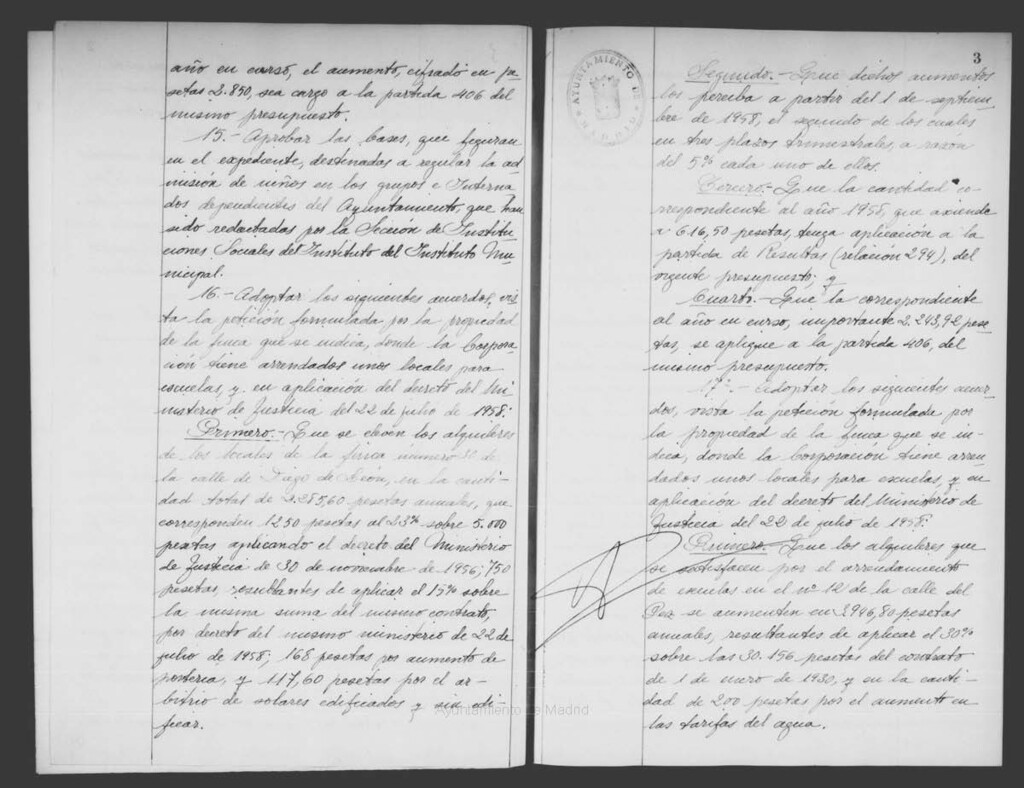 año en curso, el aumento, cifrado en pe-
setas 2.850, sea cargo a la partida 406 del
mismo presupuesto.
15.- Aprobar las bases, que figuran
en el expediente, destinadas a regular la ad-
misión de niños en los grupos e Interna-
dos dependientes del Ayuntamiento, que han
sido redactadas por la Sección de Institu-
ciones Sociales del Instituto del Instituto Mu-
nicipal.
16.- Adoptar los siguientes acuerdos, vis-
ta la petición formulada por la propiedad
de la finca que se indica, donde la Corpora-
ción tiene arrendados unos locales para
escuelas, y en aplicación del decreto del Mi-
nisterio de Justicia del 22 de julio de 1958:
Primero.- Que se eleven los alquileres
de los locales de la finca número 30 de
la calle de Diego de León, en la canti-
dad total de 2.285,60 pesetas anuales, que
corresponden 1250 pesetas al 25% sobre 5.000
pesetas aplicando el decreto del Ministerio
de Justicia de 30 de noviembre de 1956; 750
pesetas, resultantes de aplicar el 15% sobre
la misma suma del mismo contrato,
por decreto del mismo ministerio de 22 de
julio de 1958; 168 pesetas por aumento de
porteria, y 117,60 pesetas por el ar-
bitrio de solares edificados y sin edi-
ficar.
3
AYUNTAMIENTO DE MADRID
Segundo.- Que dichos aumentos
los perciba a partir del 1 de septiem-
bre de 1958, el segundo de los cuales
en tres plazos trimestrales, a razón
del 5% cada uno de ellos.
Tercero.- Que la cantidad co-
rrespondiente al año 1958, que asciende
a 616,50 pesetas, tenga aplicación a la
partida de Resultas (relación 294), del
vigente presupuesto; y
Cuarto.- Que la correspondiente
al año en curso, importante 2.243,92 pese-
tas, se aplique a la partida 406, del
mismo presupuesto.
17.- Adoptar los siguientes acuer-
dos, vista la petición formulada por
la propiedad de la finca que se in-
dica, donde la Corporación tiene arren-
dados unos locales para escuelas, y en
aplicación del decreto del Ministerio de
Justicia del 22 de julio de 1958:
Primero.- Que los alquileres que
se satisfacen por el arrendamiento
de escuelas en el nº 12 de la calle del
Pez se aumenten en 3.946,80 pesetas
anuales, resultantes de aplicar el 30%
sobre las 30.156 pesetas del contrato
de 1 de enero de 1930, y en la canti-
dad de 200 pesetas por el aumento en
las tarifas del agua.
Ayuntamiento de Madrid